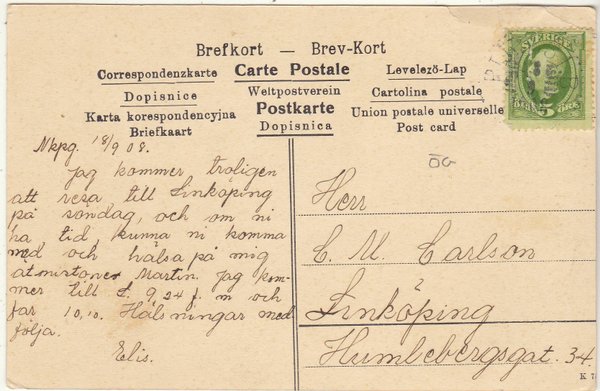 Brefkort — Brev-Kort
Correspondenzkarte Carte Postale Levelező-Lap
Dopisnice Weltpostverein Cartolina postale
Karta korespondencyjna Postkarte Union postale universelle
Briefkaart Dopisnica Post card
SVERIGE
5 ÖRE
Nkpg. 18/9 08.
Jag kommer troligen
att resa till Linköping
på söndag, och om ni
ha tid kunna ni komma
ned och hälsa på mig
Martin. Jag kom-
mer till L. 9,24 f. m och
far 10,10. Hälsningar med
följa.
Elis.
Herr
C. M. Carlson
Linköping
Humlebergsgat. 34.
K 7